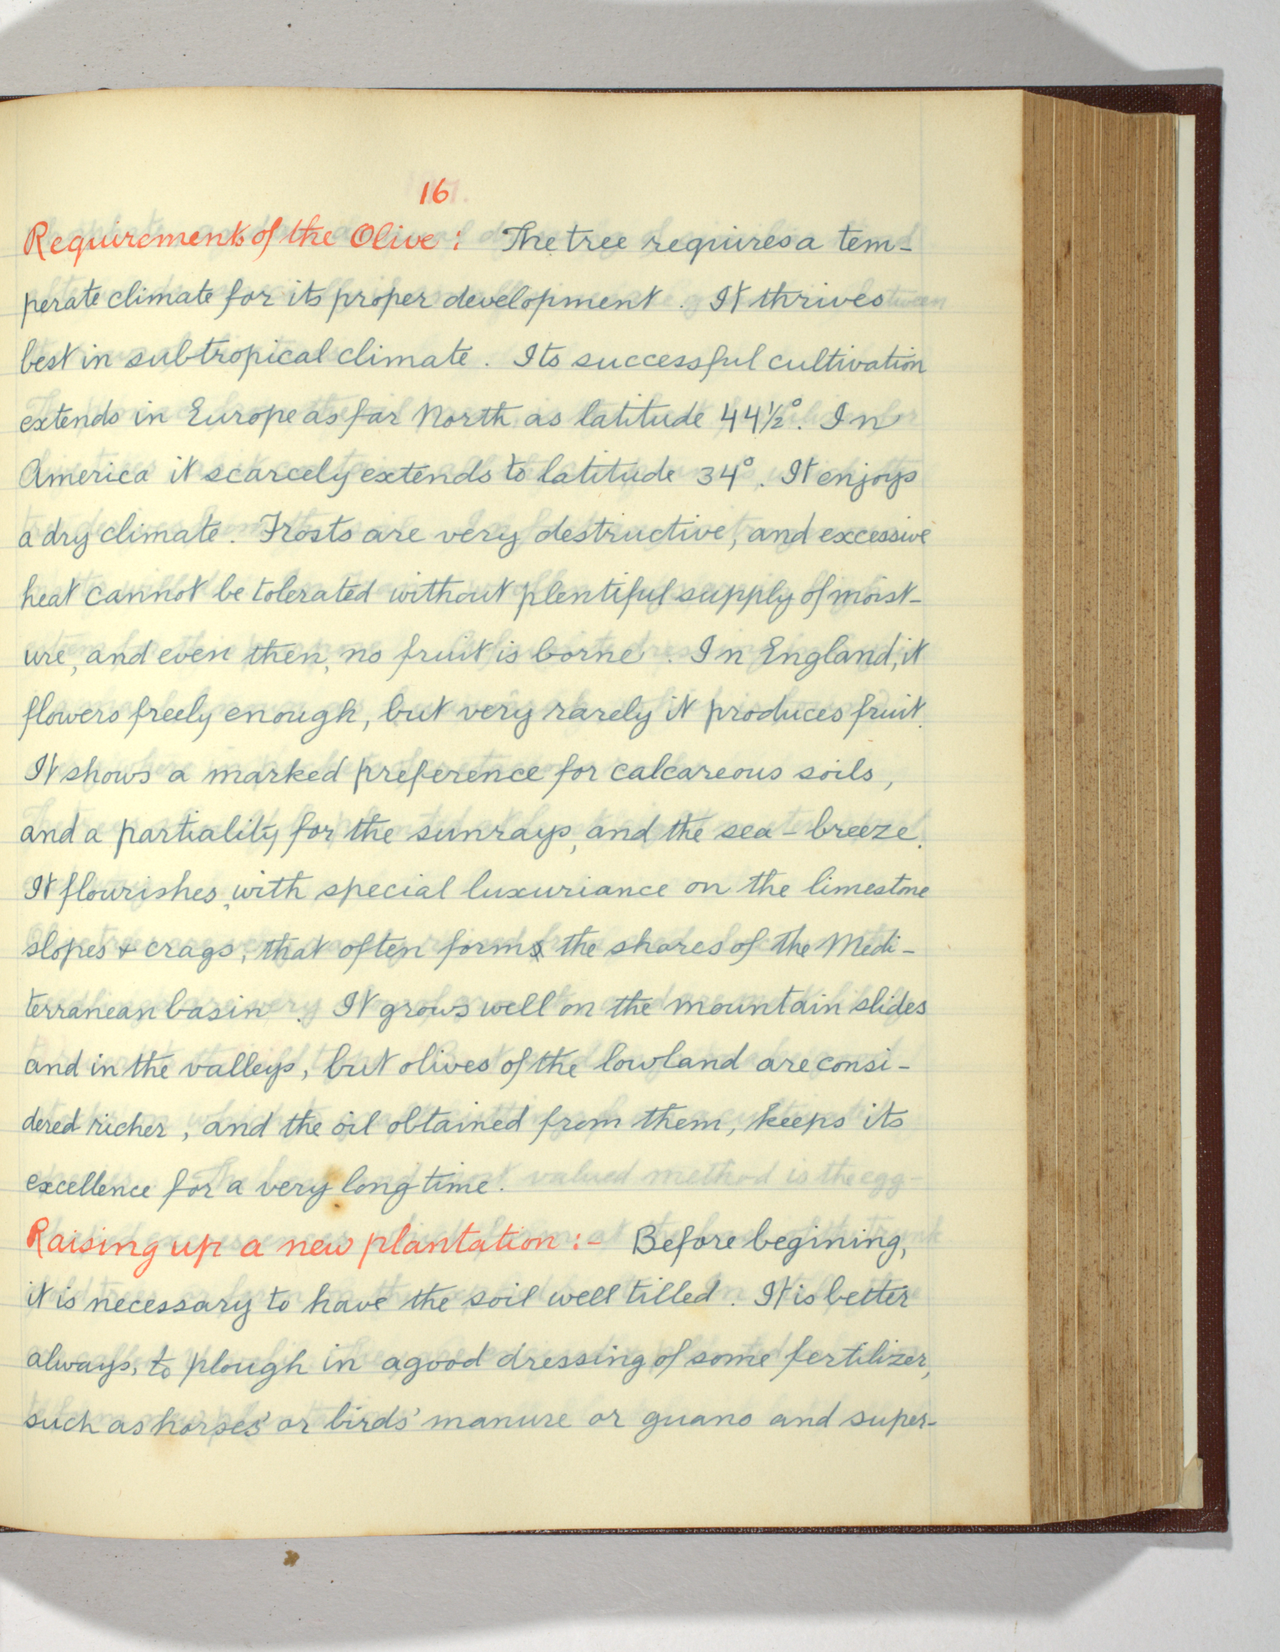 16
Requirements of the Olive: The tree requires a tem-
perate climate for its proper development. It thrives
best in subtropical climate. Its successful cultivation
extends in Europe as far North as latitude 44½°. In
America it scarcely extends to latitude 34°. It enjoys
a dry climate. Frosts are very destructive, and excessive
heat cannot be tolerated without plentiful supply of moist-
ure, and even then, no fruit is borne. In England, it
flowers freely enough, but very rarely it produces fruit.
It shows a marked preference for calcareous soils,
and a partiality for the sunrays, and the sea-breeze.
It flourishes, with special luxuriance on the limestone
slopes & crags, that often form the shores of the Medi-
terranean basin. It grows well on the mountain slides
and in the valleys, but olives of the lowland are consi-
dered richer, and the oil obtained from them, keeps its
excellence for a very long time.
Raising up a new plantation :- Before begining,
it is necessary to have the soil well tilled. It is better
always, to plough in a good dressing of some fertilizer,
such as horses' or birds' manure or guano and super-